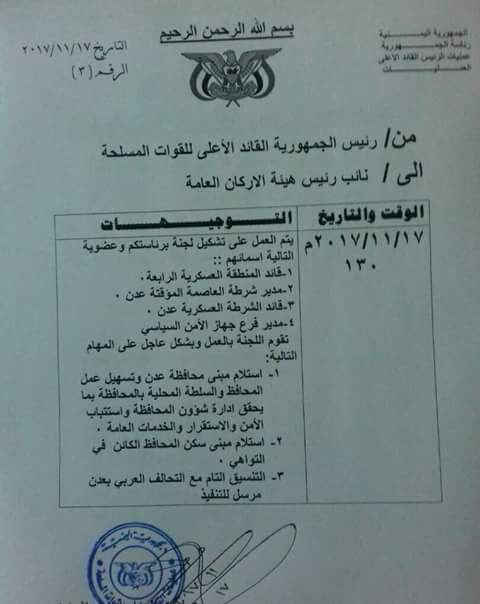 بسم الله الرحمن الرحيم
الجمهورية اليمنية
رئاسة الجمهورية
عمليات الرئيس القائد الأعلى
العمليات
التاريخ ٢٠١٧/١١/١٧
الرقم (٣)
من/ رئيس الجمهورية القائد الأعلى للقوات المسلحة
الى/ نائب رئيس هيئة الاركان العامة
الوقت والتاريخ
التوجيهات
٢٠١٧/١١/١٧م
١٣٠
يتم العمل على تشكيل لجنة برئاستكم وعضوية
التالية اسمائهم ::
١-قائد المنطقة العسكرية الرابعة.
٢-مدير شرطة العاصمة المؤقتة عدن .
٣-قائد الشرطة العسكرية عدن .
٤-مدير فرع جهاز الأمن السياسي
تقوم اللجنة بالعمل وبشكل عاجل على المهام
التالية:
١- استلام مبنى محافظة عدن وتسهيل عمل
المحافظ والسلطة المحلية بالمحافظة بما
يحقق ادارة شؤون المحافظة واستتباب
الأمن والاستقرار والخدمات العامة .
٢- استلام مبنى سكن المحافظ الكائن في
التواهي .
٣- التنسيق التام مع التحالف العربي بعدن
مرسل للتنفيذ